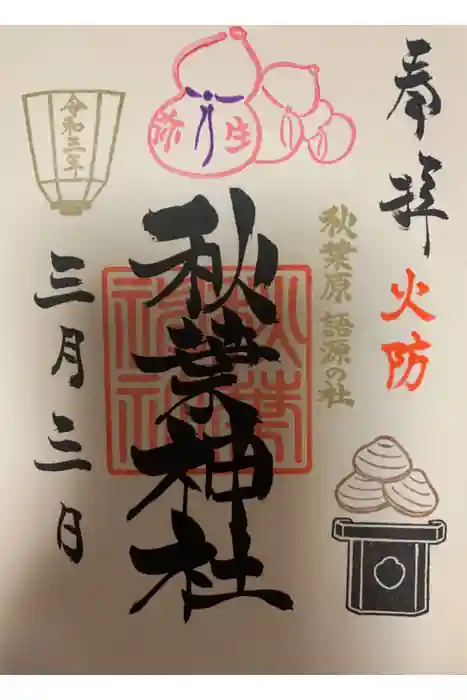 奉拝
火防
秋葉原 語源の社
弥生
秋葉神社
秋葉神社
令和三年
三月三日